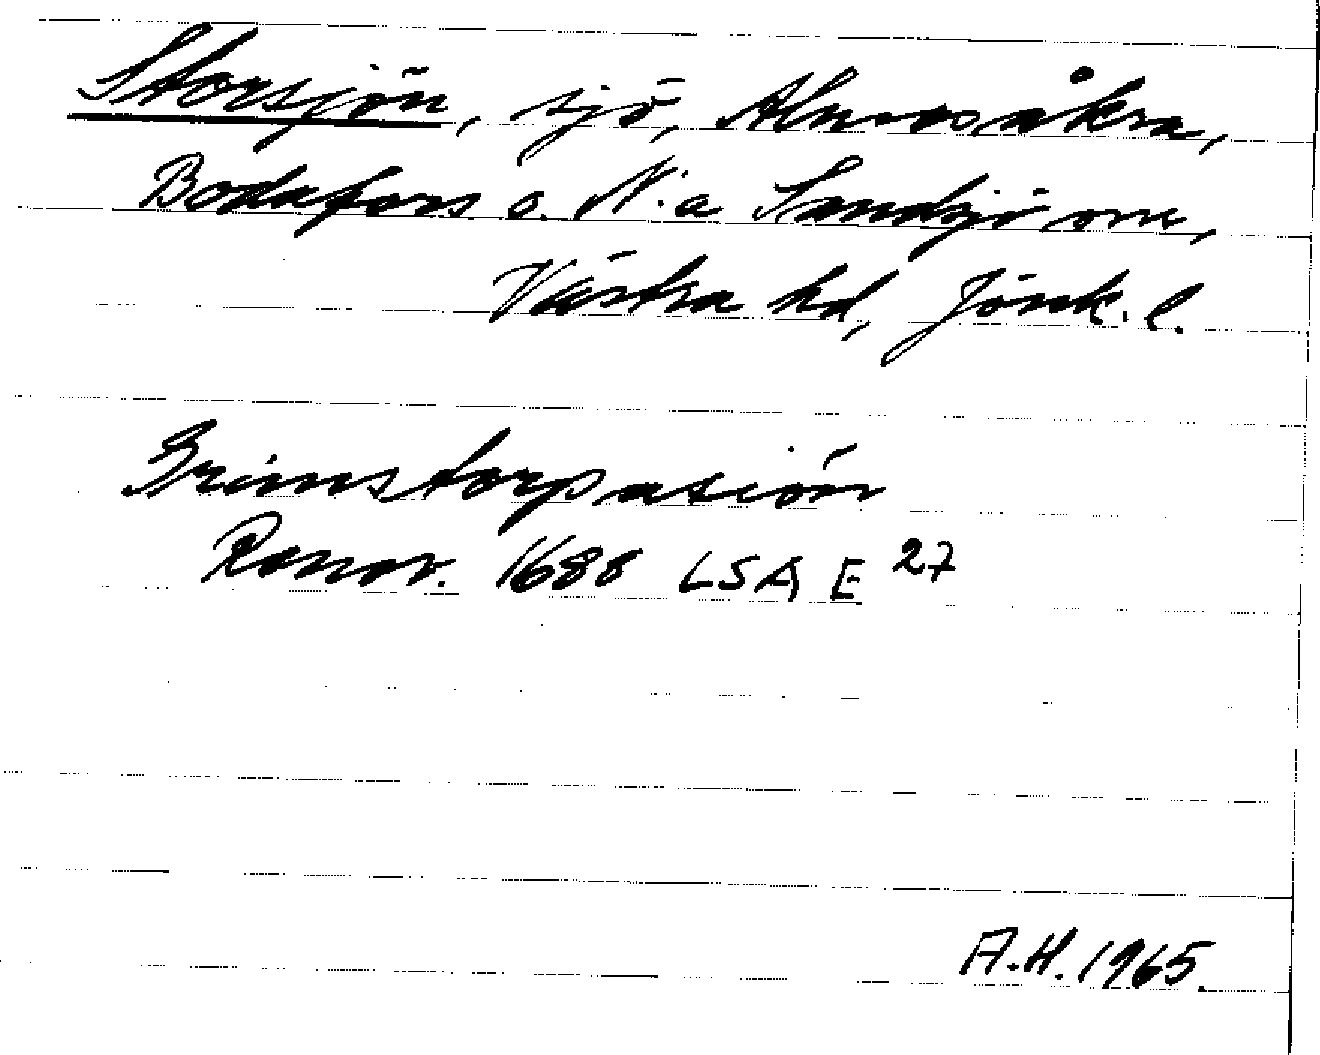 Storsjön, sjö, Almesåkra,
Bodafors o. N:a Sandsjö snr,
Västra hd, Jönk. l.
Grimstorpasiön
Ranov. 1688 LSA E 27
A.H. 1965.